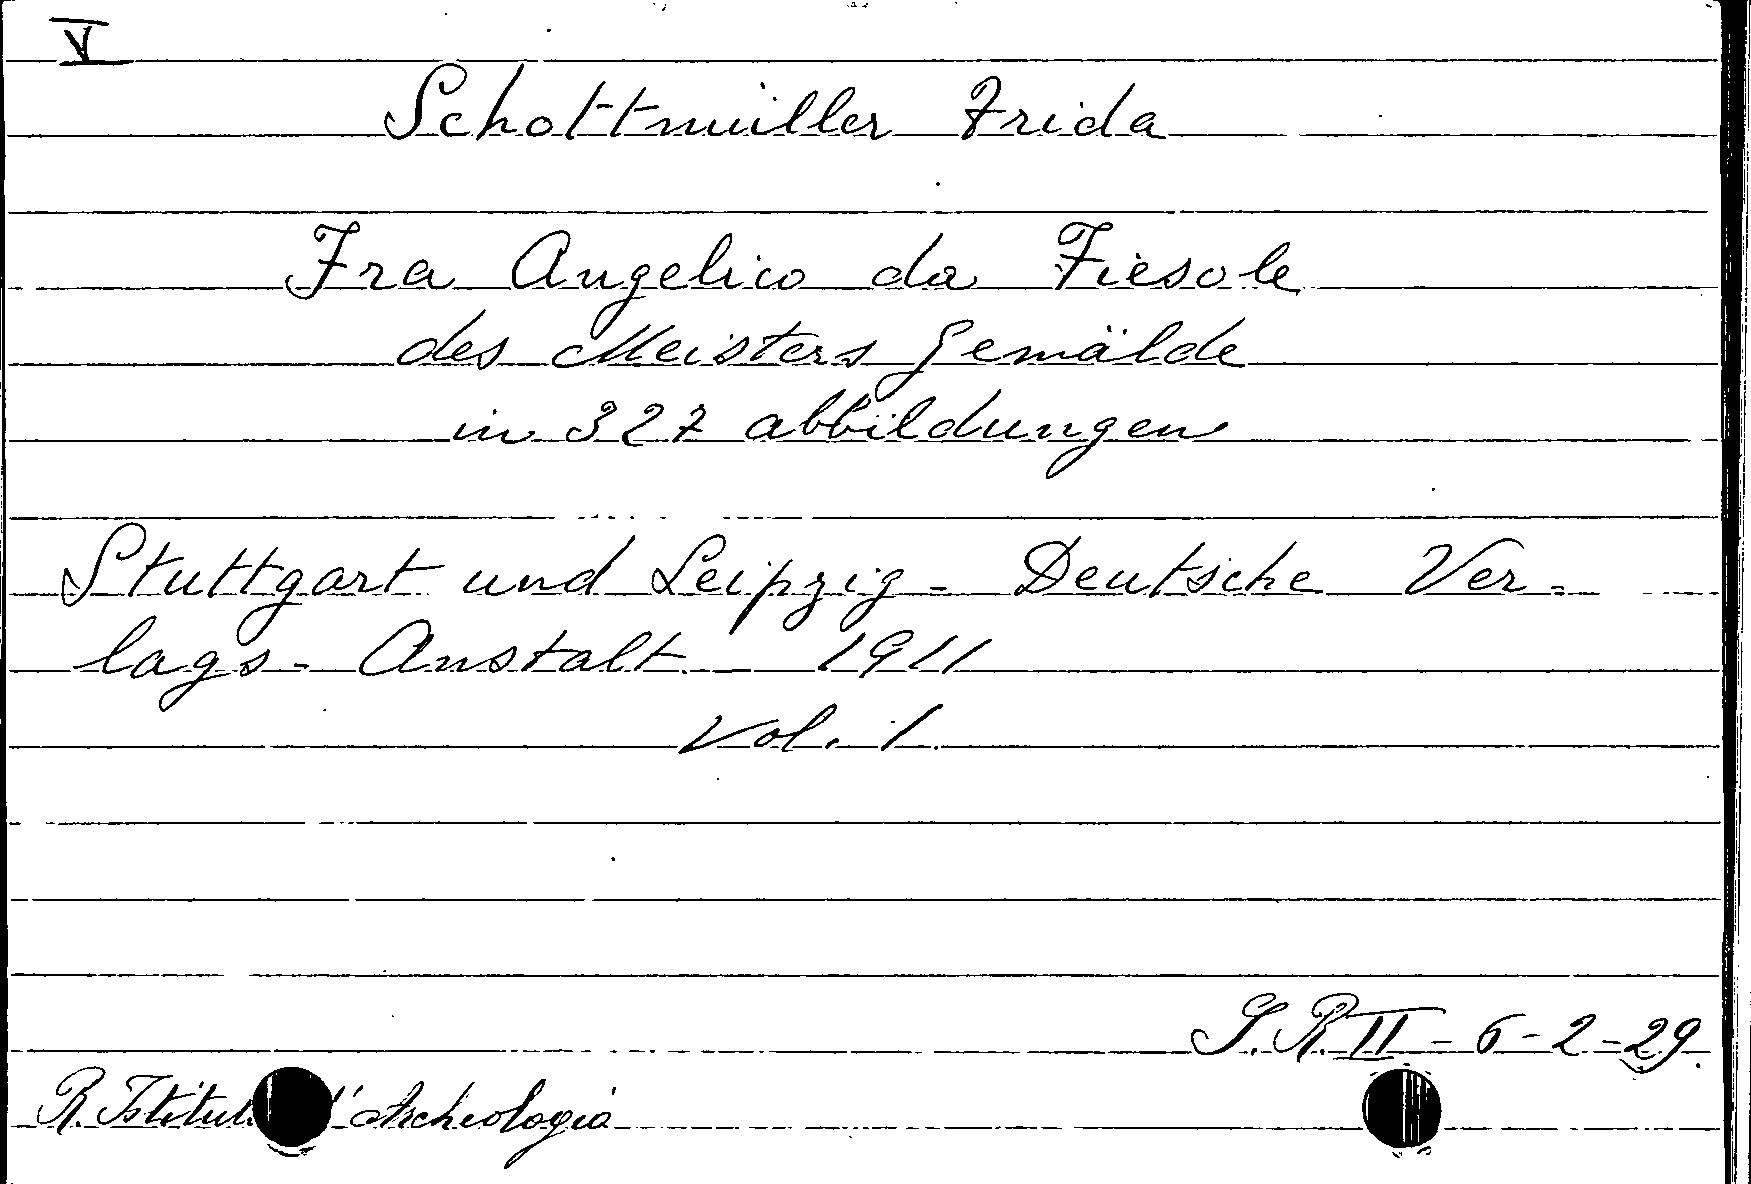 V
Schottmüller Frida
Fra Angelico da Fiesole
des Meisters Gemälde
in 327 abbildungen
Stuttgart und Leipzig - Deutsche Ver-
lags - Anstalt - 1911
Vol. 1.
S. R. II - 6 - 2 - 29.
R. Archeologia